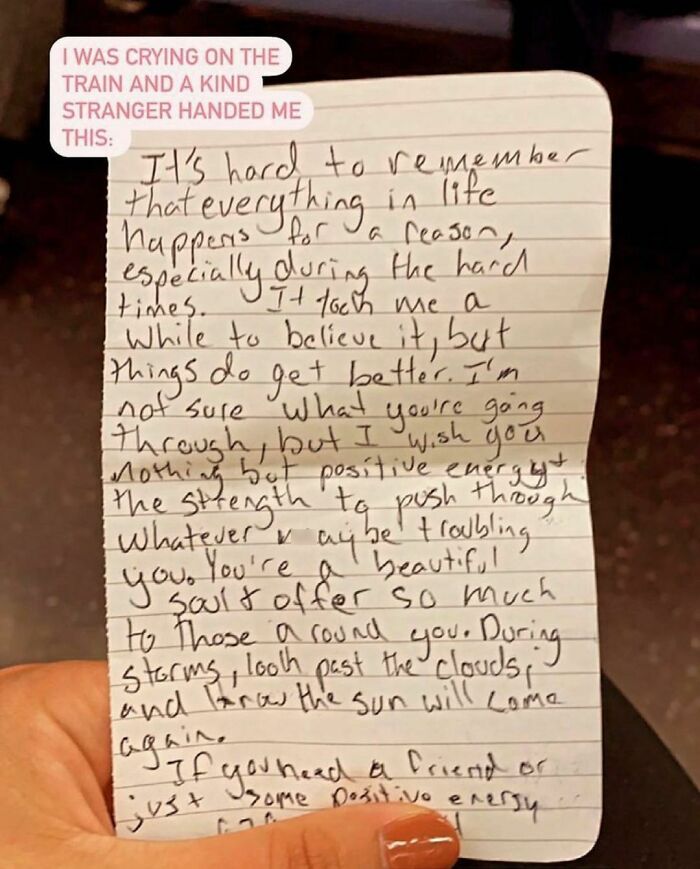 I WAS CRYING ON THE
TRAIN AND A KIND
STRANGER HANDED ME
THIS:
It's hard to remember
that everything in life
happens for a reason,
especially during the hard
times. It took me a
while to believe it, but
things do get better. I'm
not sure what you're going
through, but I wish you
nothing but positive energy +
the strength to push through
whatever may be troubling
you. You're a beautiful
soul & offer so much
to those around you. During
storms, look past the clouds,
and know the sun will come
again.
If you need a friend or
just some positive energy